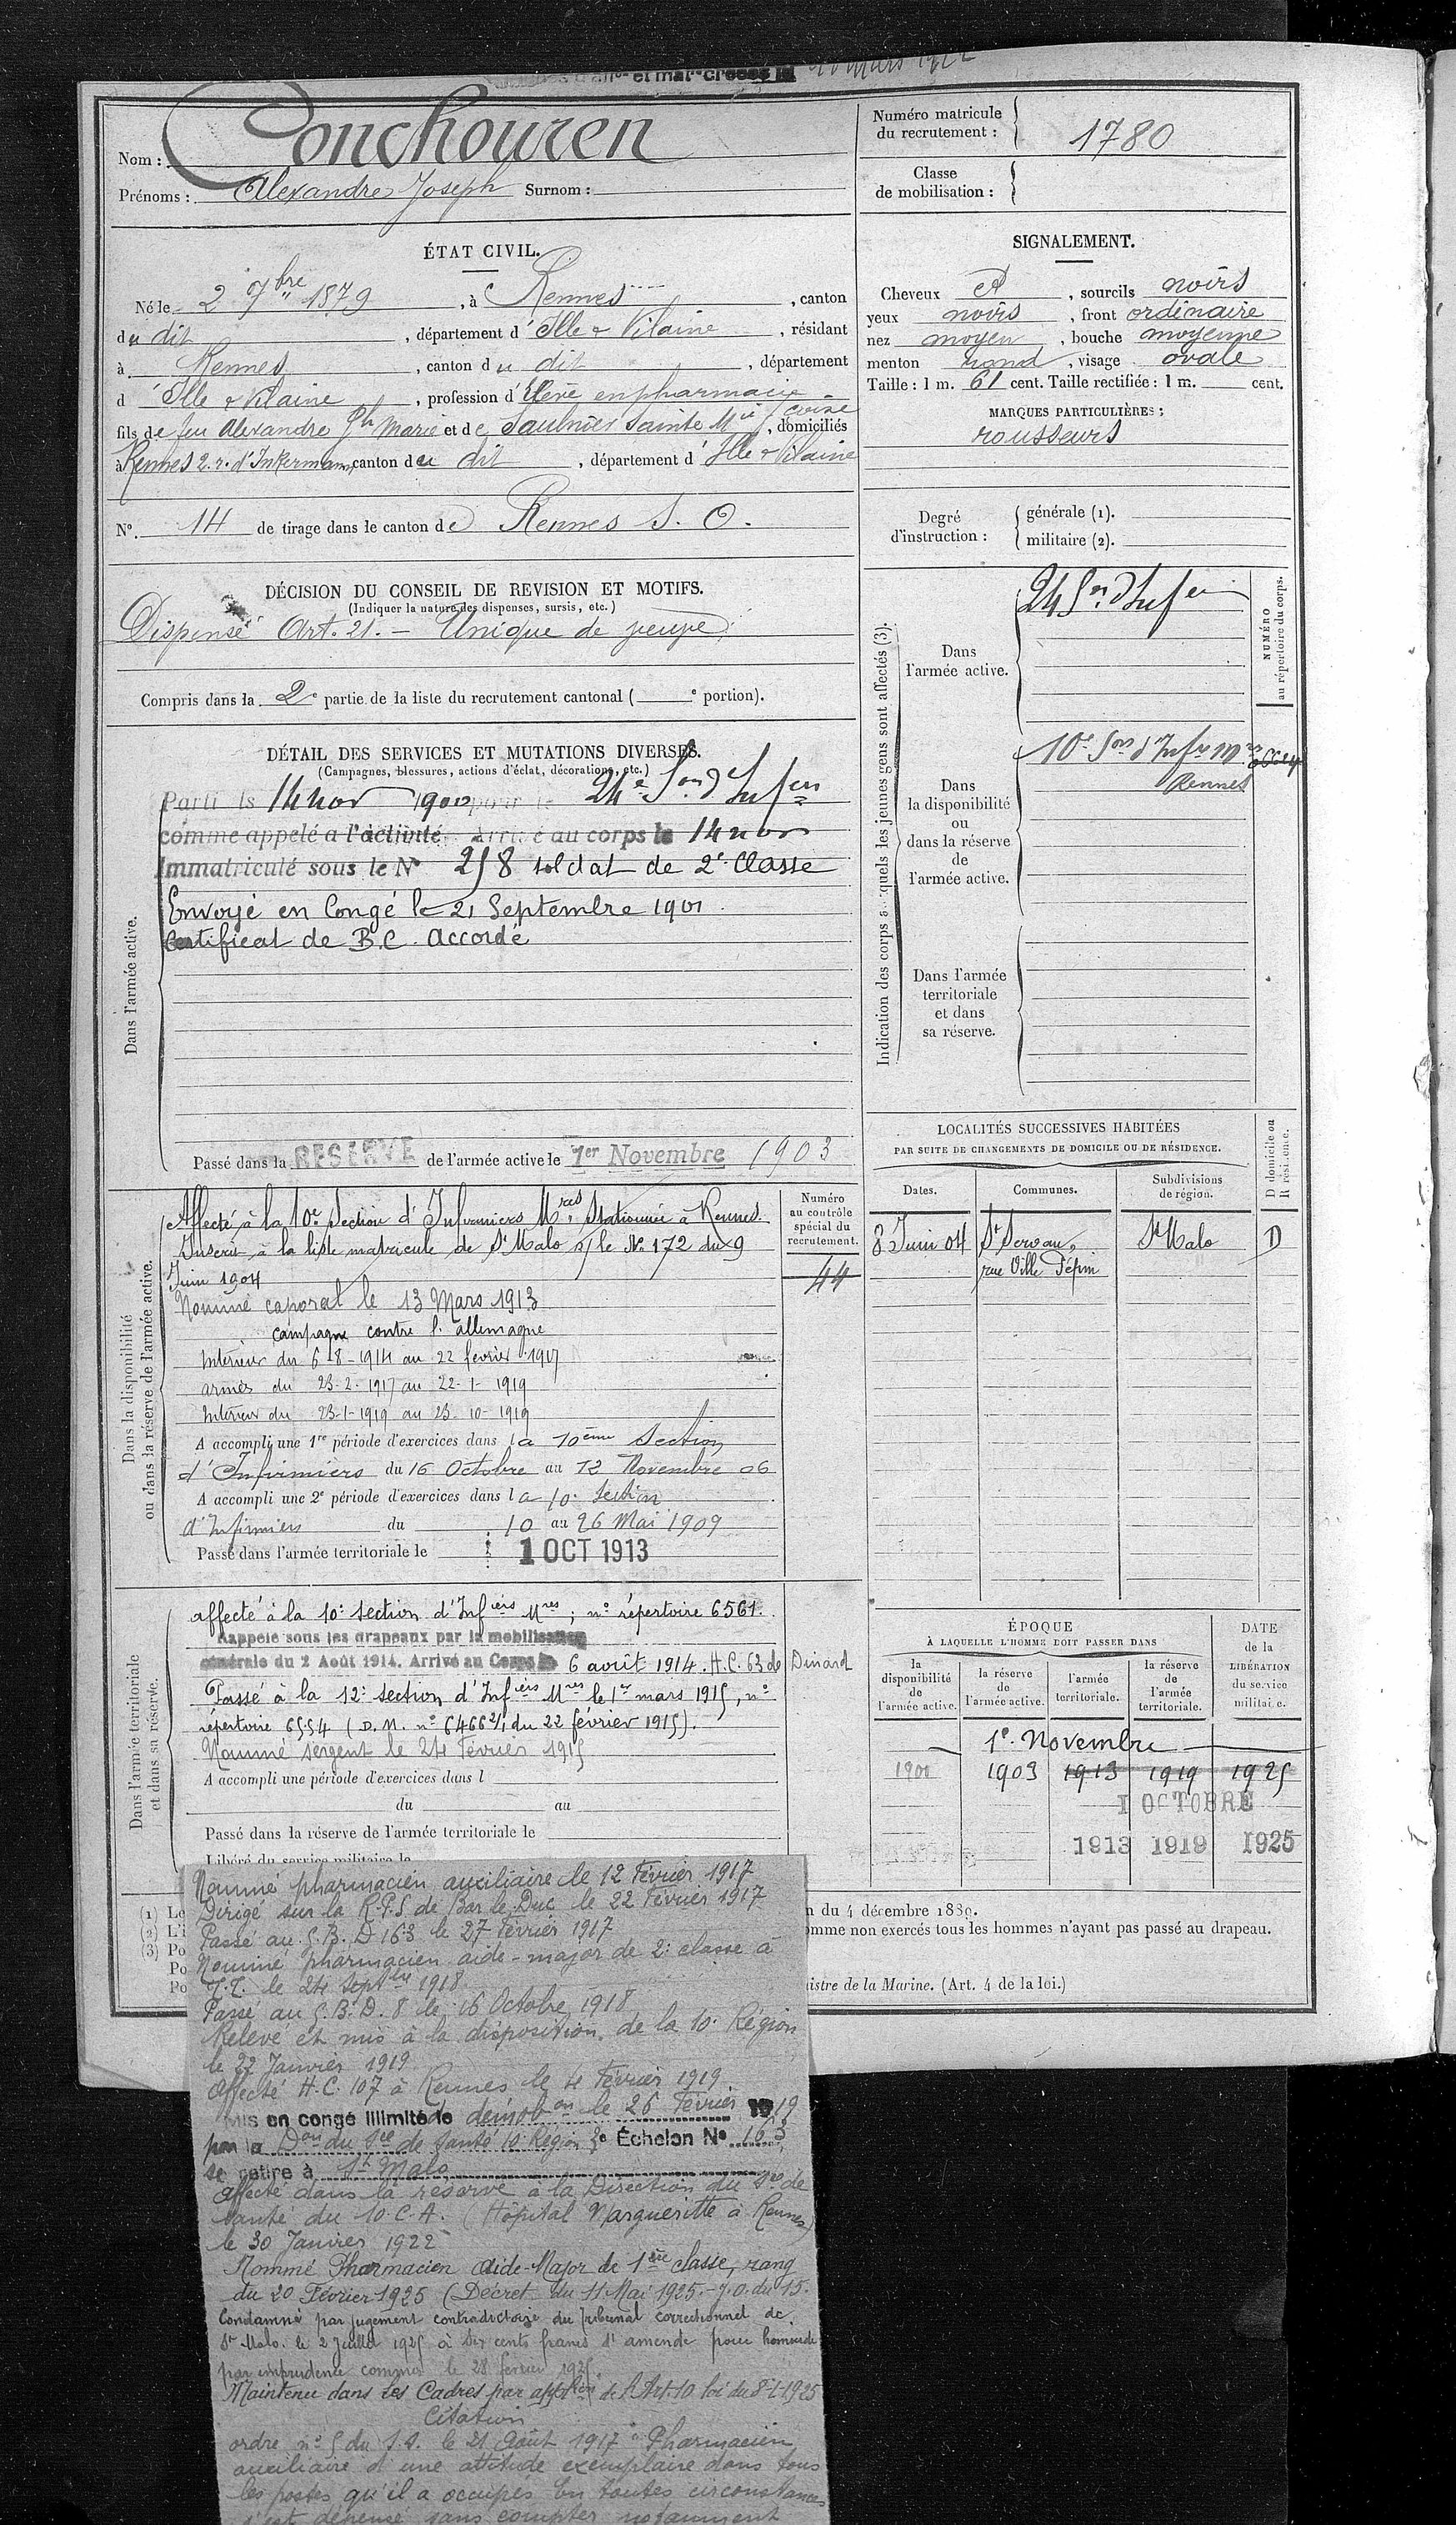 et mat. créées le 20 Mars 1922
Nom : Conchouren
Prénoms : Alexandre Joseph Surnom :
Numéro matricule
du recrutement : 1780
Classe
de mobilisation :
ÉTAT CIVIL.
Né le 2 7bre 1879, à Rennes, canton
du dit, département d'Ille & Vilaine, résidant
à Rennes, canton du dit, département
d'Ille & Vilaine, profession d'Élève en pharmacie
fils de feu Alexandre Jph Marie et de Saulnier Sainte Mie, domiciliés
à Rennes 2. r. d'Inkermann, canton du dit, département d'Ille & Vilaine
N° 14 de tirage dans le canton de Rennes S. O.
SIGNALEMENT.
Cheveux et, sourcils noirs
yeux noirs, front ordinaire
nez moyen, bouche moyenne
menton rond, visage ovale
Taille : 1 m. 61 cent. Taille rectifiée : 1 m. cent.
MARQUES PARTICULIÈRES :
rousseurs
Degré
d'instruction :
générale (1).
militaire (2).
DÉCISION DU CONSEIL DE REVISION ET MOTIFS.
(Indiquer la nature des dispenses, sursis, etc.)
Dispensé Art. 21. - Unique de veuve
Compris dans la 2e partie de la liste du recrutement cantonal ( e portion).
DÉTAIL DES SERVICES ET MUTATIONS DIVERSES.
(Campagnes, blessures, actions d'éclat, décorations, etc.)
Dans l'armée active.
Parti le 14 nov 1900 pour le 24e Son d'Infers
comme appelé à l'activité. Arrivé au corps le 14 nov
Immatriculé sous le N° 258 soldat de 2e Classe
Envoyé en Congé le 21 Septembre 1901.
Certificat de B.C. Accordé
Passé dans la RESERVE de l'armée active le 1er Novembre 1903
Indication des corps auxquels les jeunes gens sont affectés (3).
NUMÉRO
au répertoire du corps.
Dans
l'armée active.
24 Son d'Infers
Dans
la disponibilité
ou
dans la réserve
de
l'armée active.
10e Son d'Infrs Mres
Rennes
Dans l'armée
territoriale
et dans
sa réserve.
Dans la disponibilité
ou dans la réserve de l'armée active.
Affecté à la 10e Section d'Infirmiers Mres Stationnée à Rennes.
Inscrit à la liste matricule de St Malo s/ le No 172 du 9
Juin 1904
Nommé caporal le 13 Mars 1913
campagne contre l'allemagne
Intérieur du 6-8-1914 au 22 fevrier 1917
armés du 23-2-1917 au 22-1-1919
Intérieur du 23-1-1919 au 23-10-1919
A accompli une 1re période d'exercices dans la 10ème Section
d'Infirmiers du 16 Octobre au 12 Novembre 06
A accompli une 2e période d'exercices dans la 10e Section
d'Infirmiers du 10 au 26 Mai 1909
Passé dans l'armée territoriale le 1 OCT 1913
Numéro
au contrôle
spécial du
recrutement.
44
LOCALITÉS SUCCESSIVES HABITÉES
PAR SUITE DE CHANGEMENTS DE DOMICILE OU DE RÉSIDENCE.
D domicile ou
R résidence.
Dates. Communes. Subdivisions
de région.
8 Juin 04 St Servan, St Malo D
rue Ville Pépin
Dans l'armée territoriale
et dans sa réserve.
affecté à la 10e section d'Infiers Mres ; n° répertoire 6561.
Rappelé sous les drapeaux par la mobilisation
générale du 2 Août 1914. Arrivé au Corps le 6 août 1914. H.C. 63 de Dinard
Passé à la 12e section d'Infiers Mres le 1er mars 1915, n°
répertoire 6554 (D.M. n° 6466 2/7 du 22 février 1915).
Nommé sergent le 24 Février 1915
A accompli une période d'exercices dans l
du au
Passé dans la réserve de l'armée territoriale le
Libéré du service militaire le
ÉPOQUE
À LAQUELLE L'HOMME DOIT PASSER DANS
la
disponibilité
de
l'armée active.
la réserve
de
l'armée active.
l'armée
territoriale.
la réserve
de
l'armée
territoriale.
DATE
de la
LIBÉRATION
du service
militaire.
1er Novembre
1900 1903 1913 1919 1925
1 OCTOBRE
1913 1919 1925
n du 4 décembre 1889.
omme non exercés tous les hommes n'ayant pas passé au drapeau.
istre de la Marine. (Art. 4 de la loi.)
(1) Le
(2) L'i
(3) Po
Po
Po
Nommé pharmacien auxiliaire le 12 Février 1917
Dirigé sur la R.P.S de Bar le Duc le 22 Février 1917
Passé au G.B.D 163 le 27 Février 1917
Nommé pharmacien aide-major de 2e classe à
T.T. le 24 Septbre 1918
Passé au G.B.D. 8 le 16 Octobre 1918
Relevé et mis à la disposition de la 10e Région
le 22 Janvier 1919
Affecté H.C. 107 à Rennes le 4 Février 1919
Mis en congé illimité de démobon le 26 Février 1919
par la Don du Sce de Santé 10 Région 3e Échelon N° 163
se retire à St Malo
affecté dans la réserve à la Direction du Sce de
santé du 10 C.A. (Hôpital Margueritte à Rennes)
le 30 Janvier 1922
Nommé Pharmacien Aide-Major de 1ère classe, rang
du 20 Février 1925 (Décret du 11 Mai 1925 - J.O. du 15.
Condamné par jugement contradictoire du Tribunal correctionnel de
St Malo. le 2 Juillet 1925 à six cents francs d'amende pour homicide
par imprudence commis le 28 février 1925.
Maintenu dans les Cadres par applion de l'Art. 10 loi du 8-1-1925
Citation
ordre n° 5 du S.S. le 21 Août 1917 "Pharmacien
auxiliaire d'une attitude exemplaire dans tous
les postes qu'il a occupés. En toutes circonstances
s'est dépensé sans compter notamment